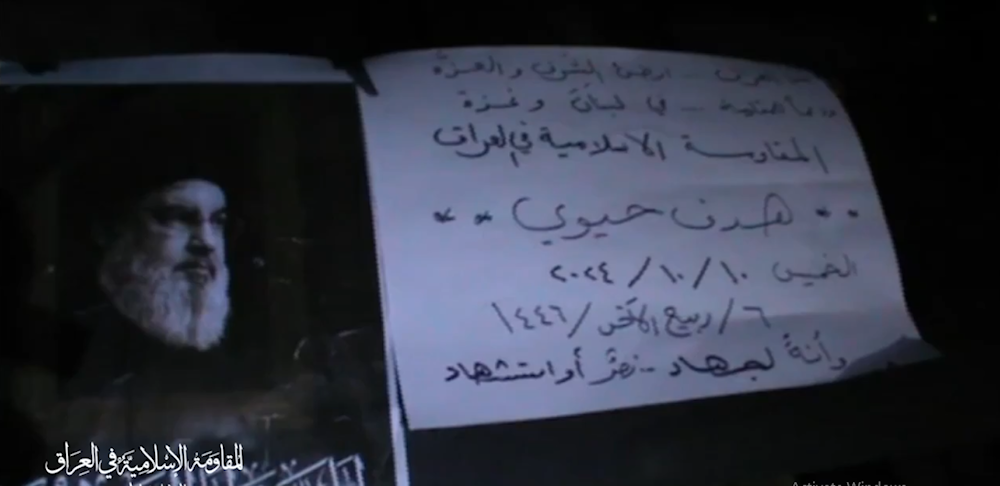 العراق .. ارض الشرف والعزة
.. في لبنان وغزة
المقاومة الاسلامية في العراق
** هدف حيوي **
الخميس ١٠/١٠/٢٠٢٤
٦/ربيع الآخر/١٤٤٦
وأنهُ لجهاد .. نصرٌ أو استشهاد
المقاومة الإسلامية في العراق
Activate Windows